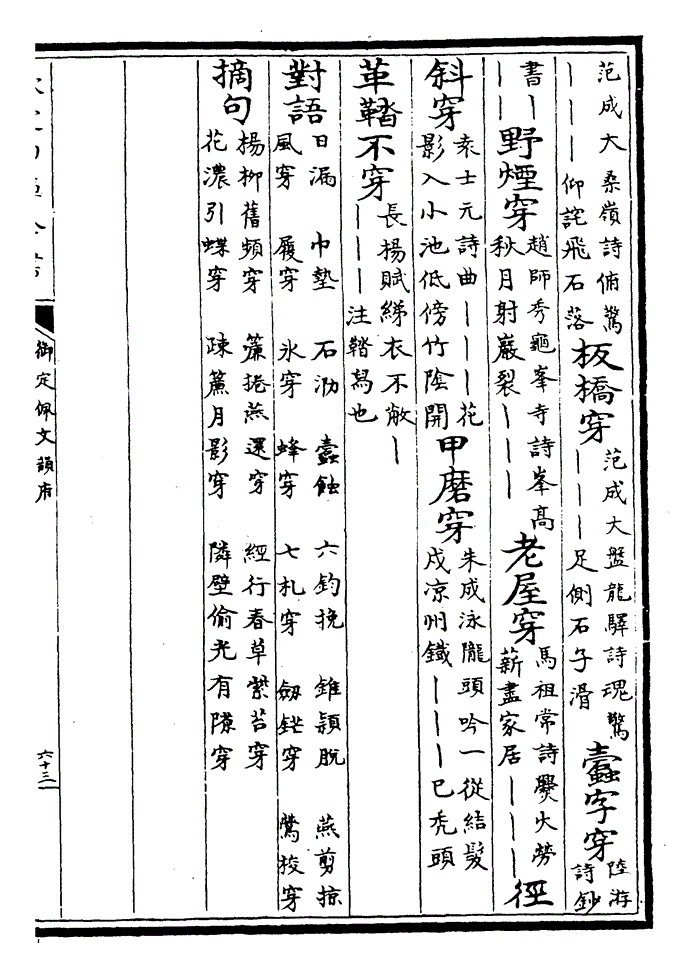 范成大桑嶺詩俯驚
｜｜｜仰詫飛石落
板橋穿
范成大盤龍驛詩瑰驚
｜｜｜足側石子滑
蠹字穿
陸游
詩鈔
書｜
野煙穿
趙師秀龜峯寺詩峯髙
秋月射巖裂｜｜｜
老屋穿
馬祖常詩爨火勞
薪盡家居｜｜｜
徑
斜穿
袁士元詩曲｜｜｜花
影入小池低傍竹陰開
甲磨穿
朱成泳隴頭吟一從結髮
戍凉州鐵｜｜｜巳禿頭
革鞜不穿
長揚賦綈衣不敝｜
｜｜｜注鞜舄也
對語
日漏　巾墊　石泐　蠹蝕　六鈞挽　錐頴脱　燕剪掠
風穿　履穿　氷穿　蜂穿　七札穿　劒鋩穿　鶯梭穿
摘句
楊柳舊頻穿　簾捲燕還穿　經行春草紫苔穿
花濃引蝶穿　疎簾月影穿　隣壁偷光有隙穿
御定佩文韻府
六十三